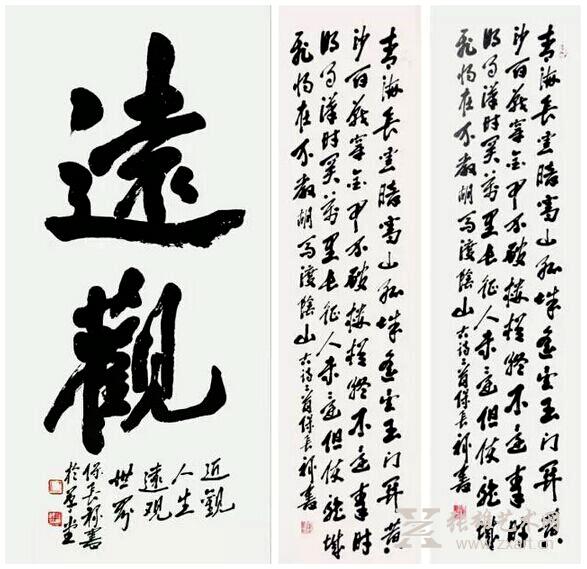 遠觀
近觀
人生
遠观
世界
青海長雲暗雪山孤城遥望玉门关黄
沙百戰穿金甲不破樓蘭終不還秦時
明月漢時關萬里長征人未還但使龍城
飛將在不教胡馬渡陰山 古诗二首
青海長雲暗雪山孤城遥望玉门关黄
沙百戰穿金甲不破樓蘭終不還秦時
明月漢時關萬里長征人未還但使龍城
飛將在不教胡馬渡陰山 古诗二首
张雄艺术网
www.zxart.cn